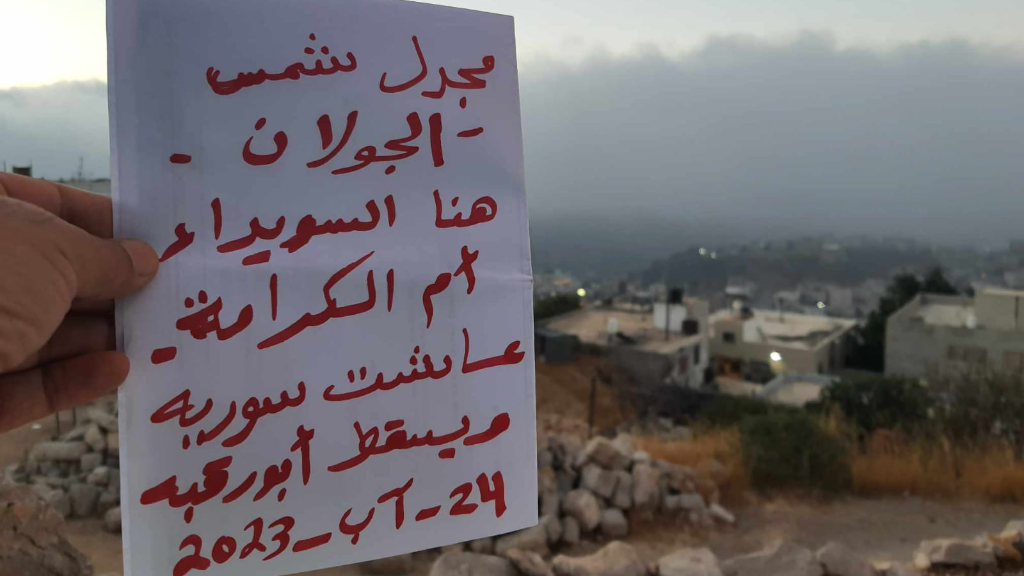 مجدل شمس
- الجولان -
هنا السويداء
أم الكرامة -
عاشت سوريه
ويسقط أبو رقبه
24 - آب - 2023